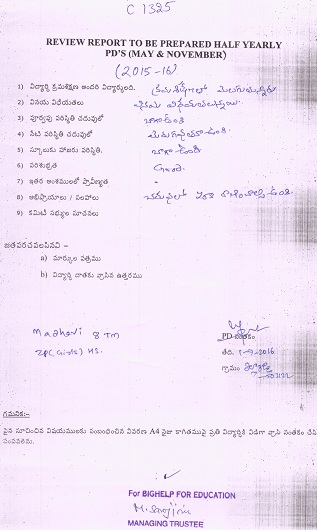 C 1325
REVIEW REPORT TO BE PREPARED HALF YEARLY
PD'S (MAY & NOVEMBER)
(2015-16)
1) విద్యార్థి క్రమశిక్షణ అందరి విద్యార్థులది. క్రమశిక్షణలో మెలుగుతున్నారు
2) వినయ విధేయతలు
3) పూర్వపు పరిస్థితి చదువులో బాగా ఉంది
4) నేటి పరిస్థితి చదువులో మెరుగ్గా ఉంది
5) స్కూలుకు హాజరు పరిస్థితి. బాగా ఉంది
6) పరిశుభ్రత Good.
7) ఇతర అంశములలో ప్రావీణ్యత -
8) అభిప్రాయాలు / సలహాలు చదువులో ఇంకా రాణించాల్సి ఉంది.
9) కమిటీ సభ్యుల సూచనలు
జతపరచవలసినవి :-
a) మార్కుల పత్రము
b) విద్యార్థి దాతకు వ్రాసిన ఉత్తరము
Madhavi 8 TM
ZP(Girls) HS.
PD సంతకం
తేది: 2016
గ్రామం:
గమనిక:-
పైన సూచించిన విషయములకు సంబంధించిన వివరణ A4 సైజు కాగితముపై ప్రతి విద్యార్థికి విడిగా వ్రాసి సంతకం చేసి
పంపవలెను.
For BIGHELP FOR EDUCATION
M. Sarojini
MANAGING TRUSTEE